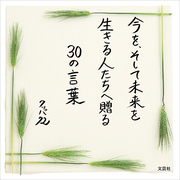 今を、そして未来を
生きる人たちへ贈る
30の言葉
クッパクル
文芸社